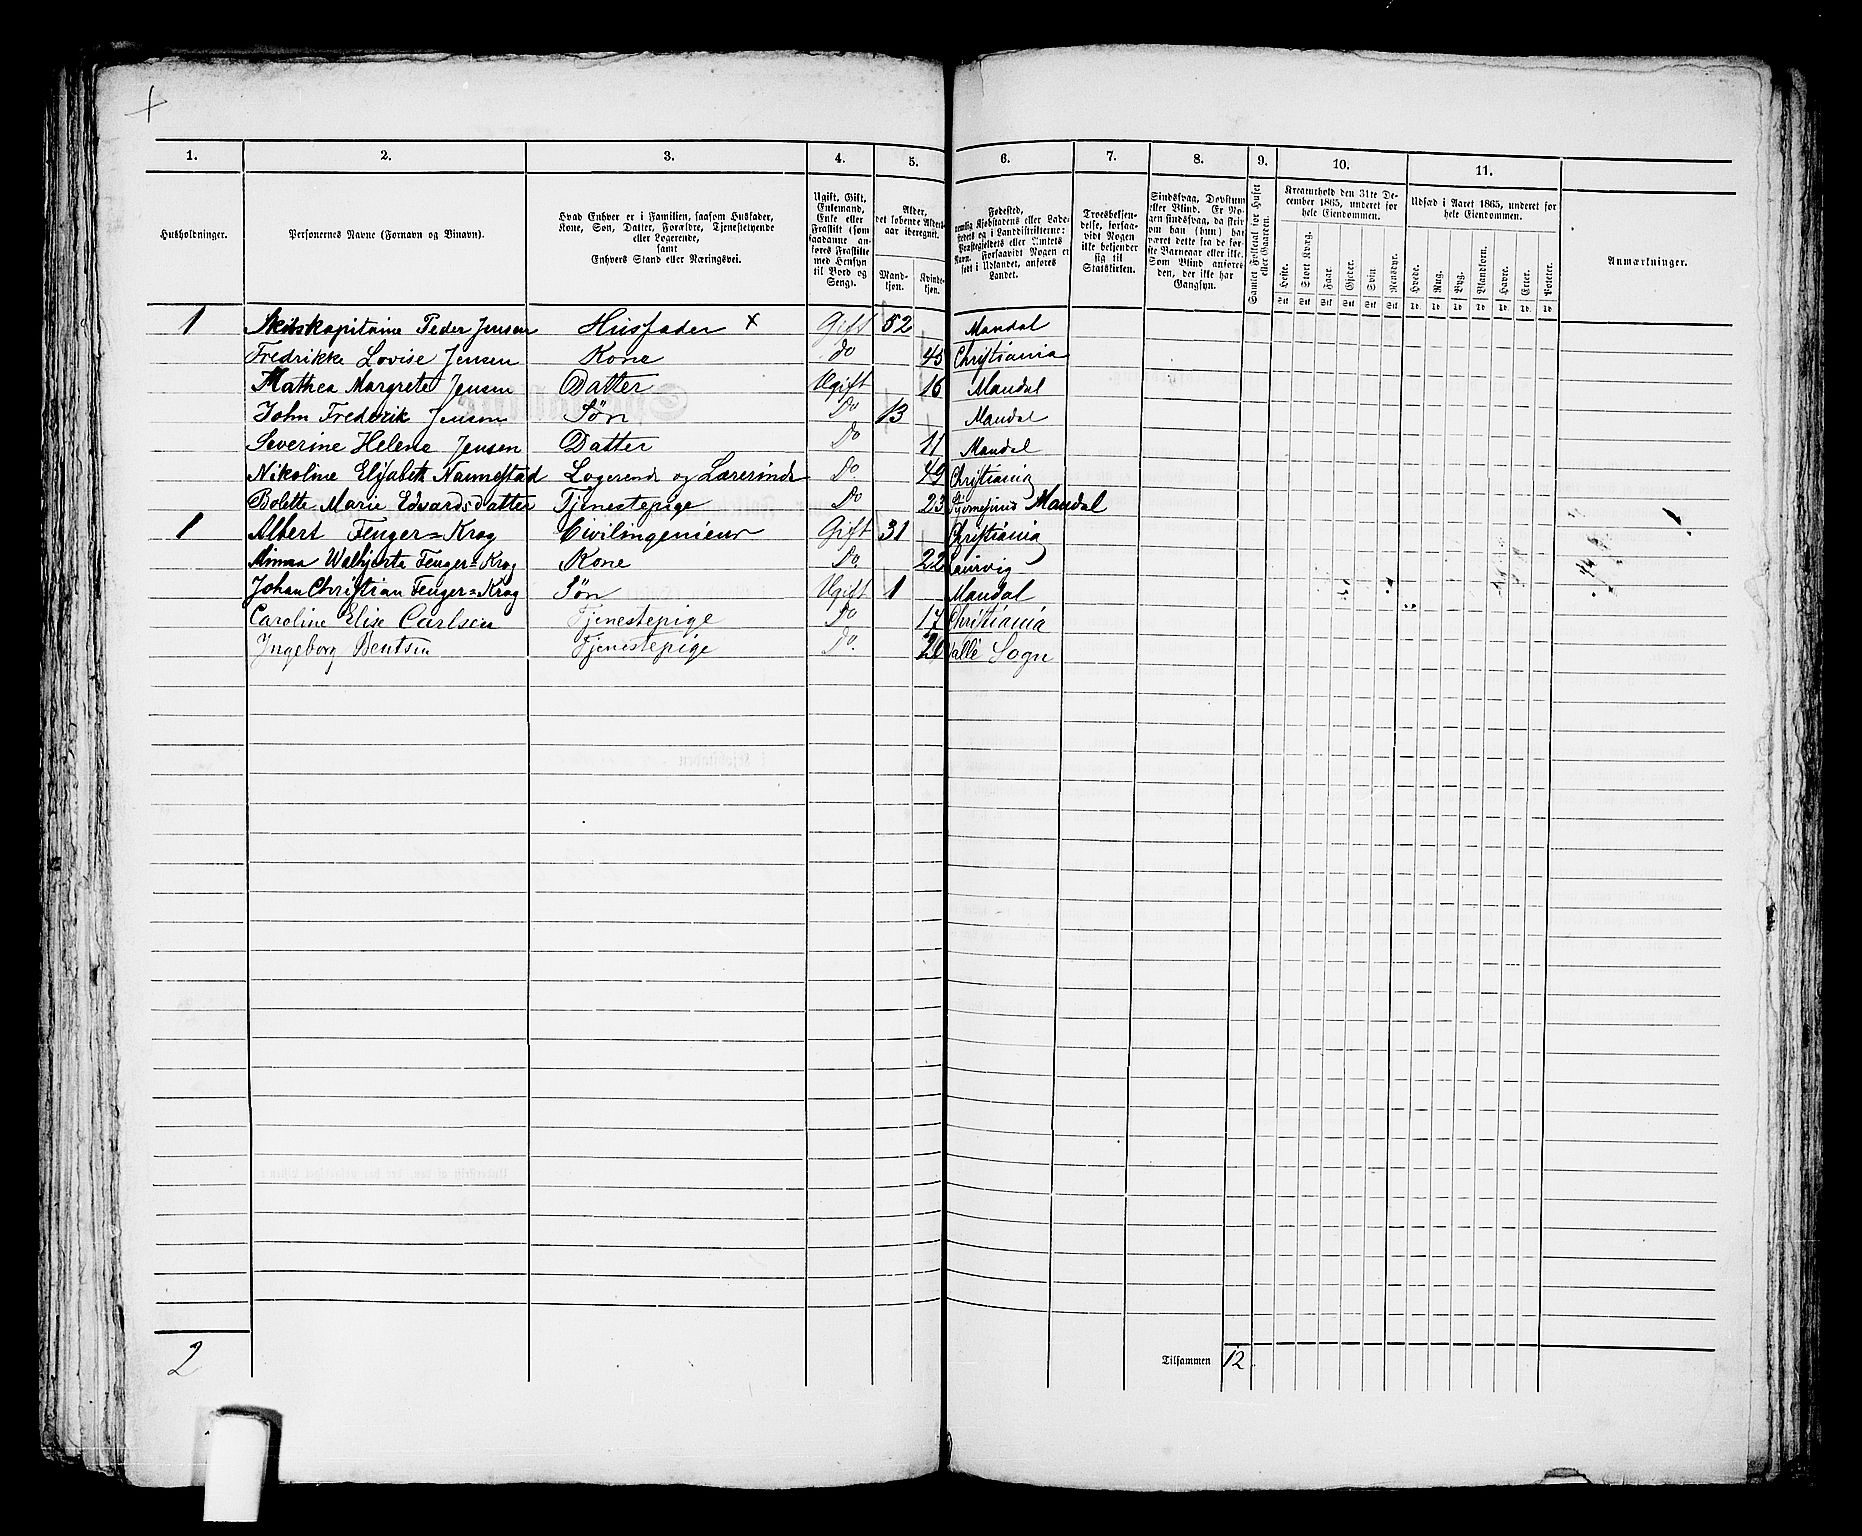 1. 2. 3. 4. 5. 6. 7. 8. 9. 10. 11.
Husholdninger.
Personernes Navne (Fornavn og Binavn).
Hvad Enhver er i Familien, saasom Husfader,
Kone, Søn, Datter, Forældre, Tjenestetyende
eller Logerende,
samt
Enhvers Stand eller Næringsvei.
Ugift, Gift,
Enkemand,
Enke eller
Fraskilt (som
saadanne an-
føres Fraskilte
med Hensyn
til Bord og
Seng).
Alder,
det løbende Alders-
aar iberegnet.
Mand-
kjøn.
Kvinde-
kjøn.
Fødested,
nemlig Kjøbstadens eller Lade-
stedets og i Landdistrikterne:
Præstegjeldets eller Amtets
Navn. Forsaavidt Nogen er
født i Udlandet, anføres
Landet.
Troesbekjen-
delse, forsaa-
vidt Nogen
ikke bekjender
sig til
Statskirken.
Sindssvag, Døvstum
eller Blind. Er No-
gen sindssvag, da skriv
om han (hun) har
været dette fra de før-
ste Barneaar eller ikke.
Som Blind anføres
den, der ikke har
Gangsyn.
Samlet Folketal for Huset
eller Gaarden.
Kreaturhold den 31te De-
cember 1865, underet for
hele Eiendommen.
Heste. Stort Kvæg. Faar. Gjeder. Svin. Rensdyr.
Stk Stk Stk Stk Stk Stk
Udsæd i Aaret 1865, underet for
hele Eiendommen.
Hvede. Rug. Byg. Blandkorn. Havre. Erter. Poteter.
Td. Td. Td. Td. Td. Td. Td.
Anmærkninger.
1 Skibskapitaine Peder Jensen Husfader x Gift 52 Mandal
Fredrikke Lovise Jensen Kone do 45 Christiania
Mathea Margrete Jensen Datter Ugift 16 Mandal
John Frederik Jensen Søn Do 13 Mandal
Severine Helene Jensen Datter Do 11 Mandal
Nikoline Elisabeth Nannestad Logerende og Lærerinde Do 49 Christiania
Bolette Marie Edvardsdatter Tjenestepige Do 23 Mandal
1 Albert Fenger=Krog Civilingenieur Gift 31 Christiania
Minna Walhjerta Fenger=Krog Kone Do 22 Laurvig
Johan Christian Fenger=Krog Søn Ugift 1 Mandal
Caroline Elise Carlsen Tjenestepige Do 17 Christiania
Ingeborg Bentsen Tjenestepige Do. 20 Valle Sogn
2 Tilsammen 12